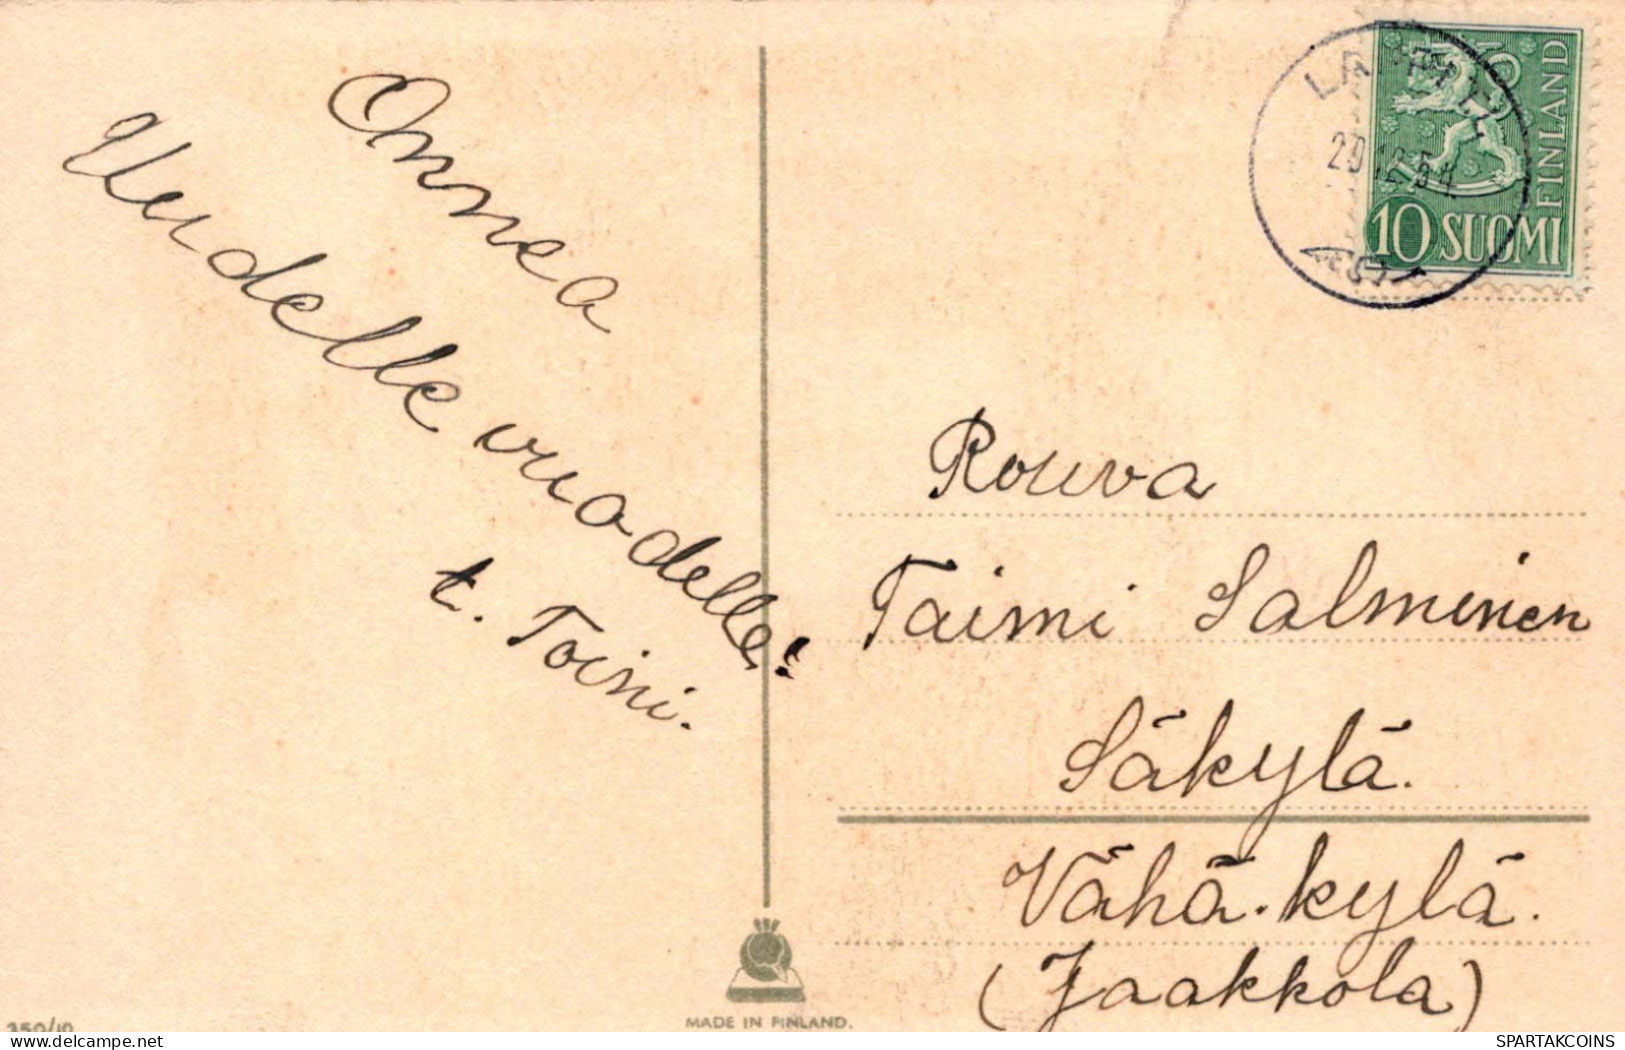 Onnea
Uudelle vuodelle!
t. Toini.
10 SUOMI
FINLAND
10
Rouva
Taimi Salminen
Säkylä.
Vähä-kylä.
(Jaakkola)
MADE IN FINLAND.
350/10
SPARTAKCOINS
WWW.DELCAMPE.NET